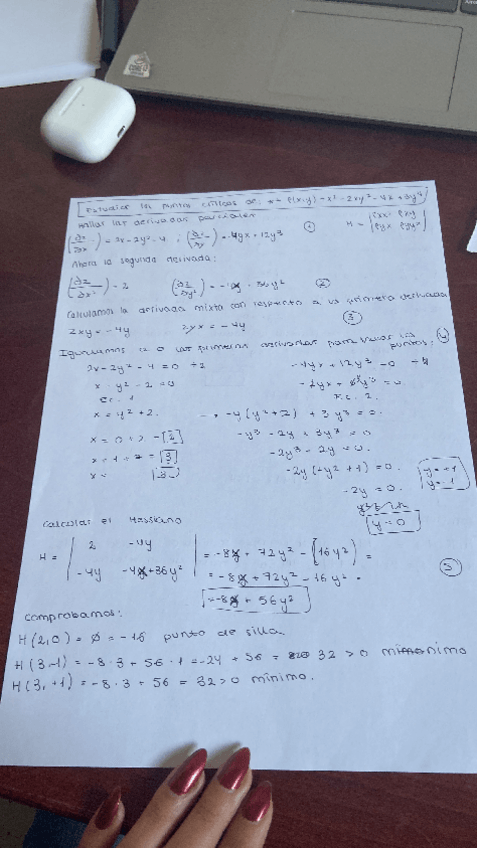 Estudiar los puntos críticos de: z = f(x,y) = x² - 2xy² - 4x + 3y⁴
Hallar las derivadas parciales
(∂z/∂x) = 2x - 2y² - 4 ; (∂z/∂y) = -4yx + 12y³ ① H = |zxx zxy / zyx zyy|
Ahora la segunda derivada:
(∂²z/∂x²) = 2 (∂²z/∂y²) = -4x + 36y² ②
Calculamos la derivada mixta con respecto a la primera derivada
zxy = -4y zyx = -4y ③
Igualamos a 0 las primeras derivadas para hallar los puntos: ④
2x - 2y² - 4 = 0 ÷2 -4yx + 12y³ = 0 ÷2
x - y² - 2 = 0 -2yx + 6y³ = 0
Ec. 1 Ec. 2.
x = y² + 2. -y(y² + 2) + 3y³ = 0.
x = 0 + 2 = 2 -y³ - 2y + 3y³ = 0
x = 1 + 2 = 3 -2y³ - 2y = 0.
x = 3 -2y(-y² + 1) = 0. y = +1
-2y = 0. y = -1
y = 0
Calcular el Hessiano
H = |2 -4y / -4y -4x + 36y²| = -8x + 72y² - [16y²] =
= -8x + 72y² - 16y² = ⑤
= -8x + 56y²
Comprobamos:
H(2,0) = 0 = -16 punto de silla
H(3,-1) = -8·3 + 56·1 = -24 + 56 = 32 > 0 mínimo
H(3,+1) = -8·3 + 56 = 32 > 0 mínimo.